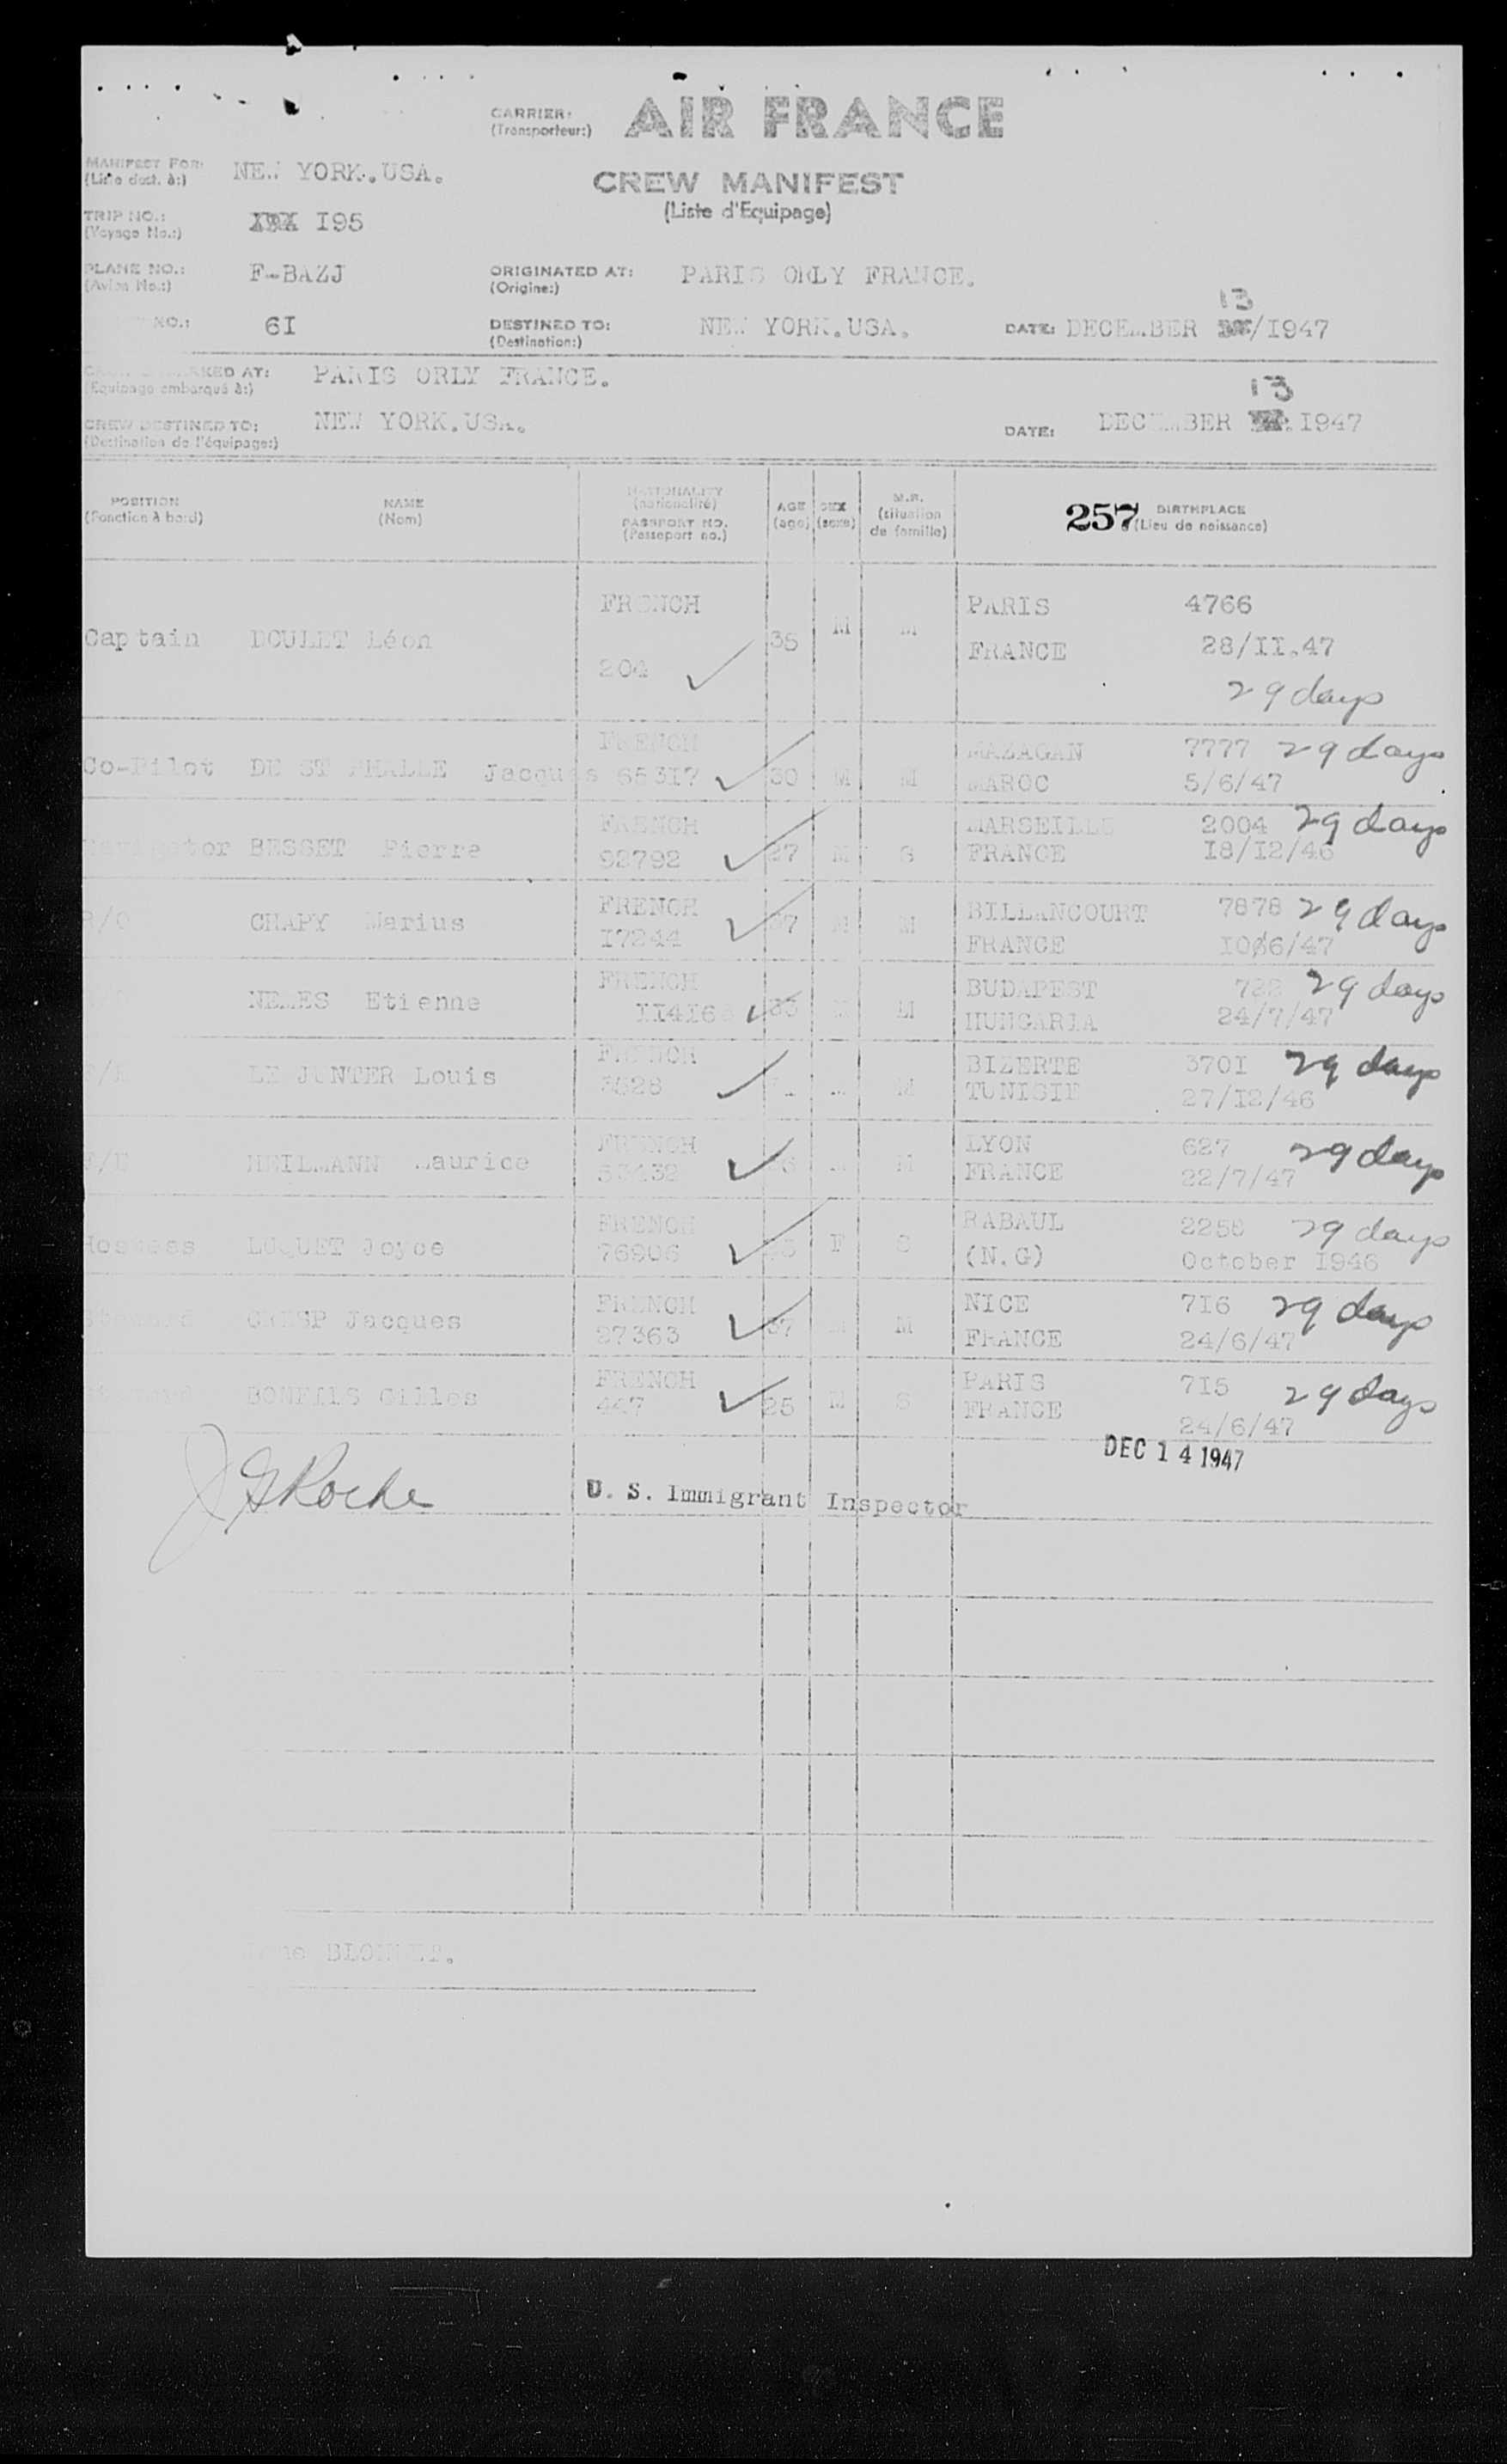 CARRIER: AIR FRANCE
(Transporteur:)
MANIFEST FOR: NEW YORK.USA.
(Liste dest. à:)
CREW MANIFEST
(Liste d'Equipage)
TRIP NO.: I95
(Voyage No.:)
PLANE NO.: F-BAZJ
(Avion No.:)
ORIGINATED AT: PARIS ORLY FRANCE.
(Origine:)
13
NO.: 6I
DESTINED TO: NEW YORK.USA.
(Destination:)
DATE: DECEMBER /I947
KED AT: PARIS ORLY FRANCE.
(Equipage embarqué à:)
13
CREW DESTINED TO: NEW YORK.USA.
(Destination de l'équipage:)
DATE: DECEMBER I947
POSITION
(Fonction à bord)
NAME
(Nom)
NATIONALITY
(nationalité)
PASSPORT NO.
(Passeport no.)
AGE
(age)
SEX
(sexe)
M.R.
(situation
de famille)
257 BIRTHPLACE
(Lieu de naissance)
Captain DOULET Léon FRENCH 204 M M PARIS 4766
FRANCE 28/II.47
29 days
Co-Pilot DE ST PHALLE Jacques FRENCH 65317 30 M M MAZAGAN 7777 29 days
MAROC 5/6/47
Navigator BESSET Pierre FRENCH 92792 27 M S MARSEILLE 2004 29 days
FRANCE I8/I2/46
R/O CHAPY Marius FRENCH I7244 37 M M BILLANCOURT 7878 29 days
FRANCE
NEMES Etienne FRENCH M BUDAPEST 29 days
HUNGARIA 24/7/47
LE JUNTER Louis FRENCH M BIZERTE 370I 29 days
TUNISIE 27/I2/46
HEILMANN Maurice FRENCH M LYON 627 29 days
FRANCE 22/7/47
Hostess LUQUET Joyce FRENCH 76906 F S RABAUL 29 days
(N.G) October I946
Steward CRESP Jacques FRENCH 27363 37 M M NICE 7I6 29 days
FRANCE 24/6/47
BONFILS Gilles FRENCH 447 25 M S PARIS 7I5 29 days
FRANCE 24/6/47
DEC 14 1947
JGRoche U. S. Immigrant Inspector